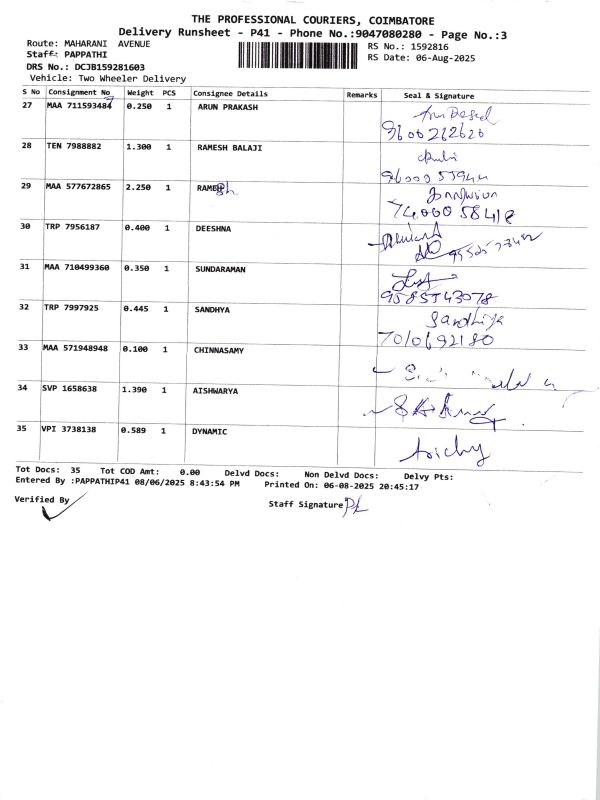 THE PROFESSIONAL COURIERS, COIMBATORE
Delivery Runsheet - P41 - Phone No.:9047080280 - Page No.:3
Route: MAHARANI AVENUE
RS No.: 1592816
Staff: PAPPATHI
RS Date: 06-Aug-2025
DRS No.: DCJB159281603
Vehicle: Two Wheeler Delivery
S No Consignment No Weight PCS Consignee Details Remarks Seal & Signature
27 MAA 711593484 0.250 1 ARUN PRAKASH
9600262626
28 TEN 7988882 1.300 1 RAMESH BALAJI
29 MAA 577672865 2.250 1 RAMESh
74000 58418
30 TRP 7956187 0.400 1 DEESHNA
31 MAA 710499360 0.350 1 SUNDARAMAN
9585543078
32 TRP 7997925 0.445 1 SANDHYA
Sandhiya
7010692180
33 MAA 571948948 0.100 1 CHINNASAMY
34 SVP 1658638 1.390 1 AISHWARYA
35 VPI 3738138 0.589 1 DYNAMIC
trichy
Tot Docs: 35 Tot COD Amt: 0.00 Delvd Docs: Non Delvd Docs: Delvy Pts:
Entered By :PAPPATHIP41 08/06/2025 8:43:54 PM Printed On: 06-08-2025 20:45:17
Verified By
Staff Signature